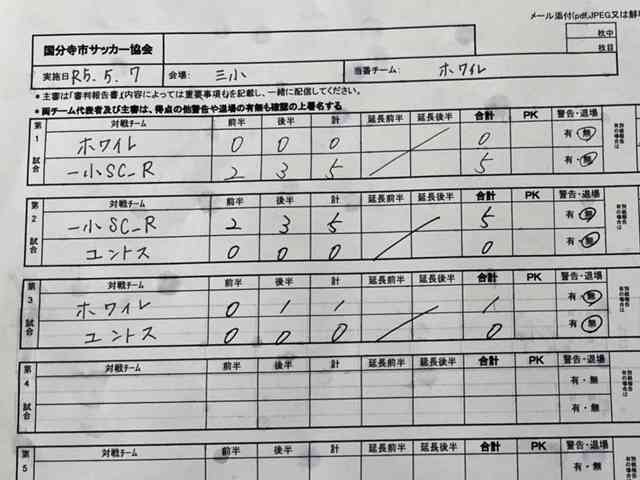 メール添付(pdf,JPEG又は鮮
枚中
枚目
国分寺市サッカー協会
実施日 R5.5.7 会場: 三小 当番チーム: ホワイト
*主審は「審判報告書」(内容によっては重要事項も)を記載し、一緒に配信してください。
*両チーム代表者及び主審は、得点の他警告や退場の有無も確認の上署名する
第1試合 対戦チーム 前半 後半 計 延長前半 延長後半 合計 PK 警告・退場 別紙報告有の場合は
ホワイト 0 0 0 0 有・無
一小SC_R 2 3 5 5 有・無
第2試合 対戦チーム 前半 後半 計 延長前半 延長後半 合計 PK 警告・退場 別紙報告有の場合は
一小SC_R 2 3 5 5 有・無
エントス 0 0 0 0 有・無
第3試合 対戦チーム 前半 後半 計 延長前半 延長後半 合計 PK 警告・退場 別紙報告有の場合は
ホワイト 0 1 1 1 有・無
エントス 0 0 0 0 有・無
第4試合 対戦チーム 前半 後半 計 延長前半 延長後半 合計 PK 警告・退場 別紙報告有の場合は
有・無
有・無
第5 対戦チーム 前半 後半 計 延長前半 延長後半 合計 PK 警告・退場
有・無